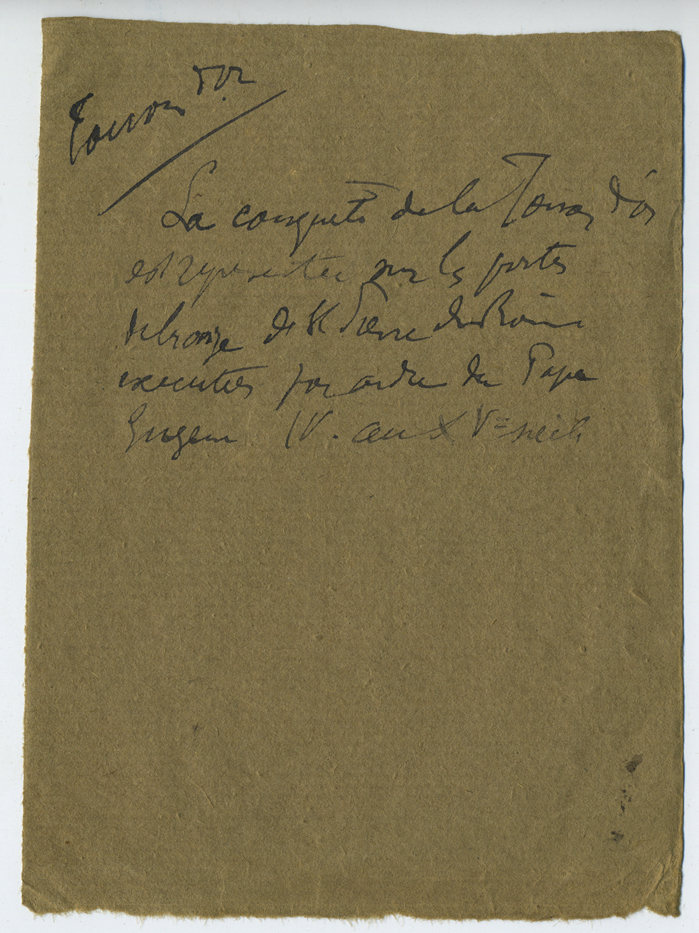 Toison d'or
La conquête de la Toison d'or
est représentée sur les portes
de bronze de St Pierre de Rome
executées par ordre du Pape
Eugene IV. au XVe siècle